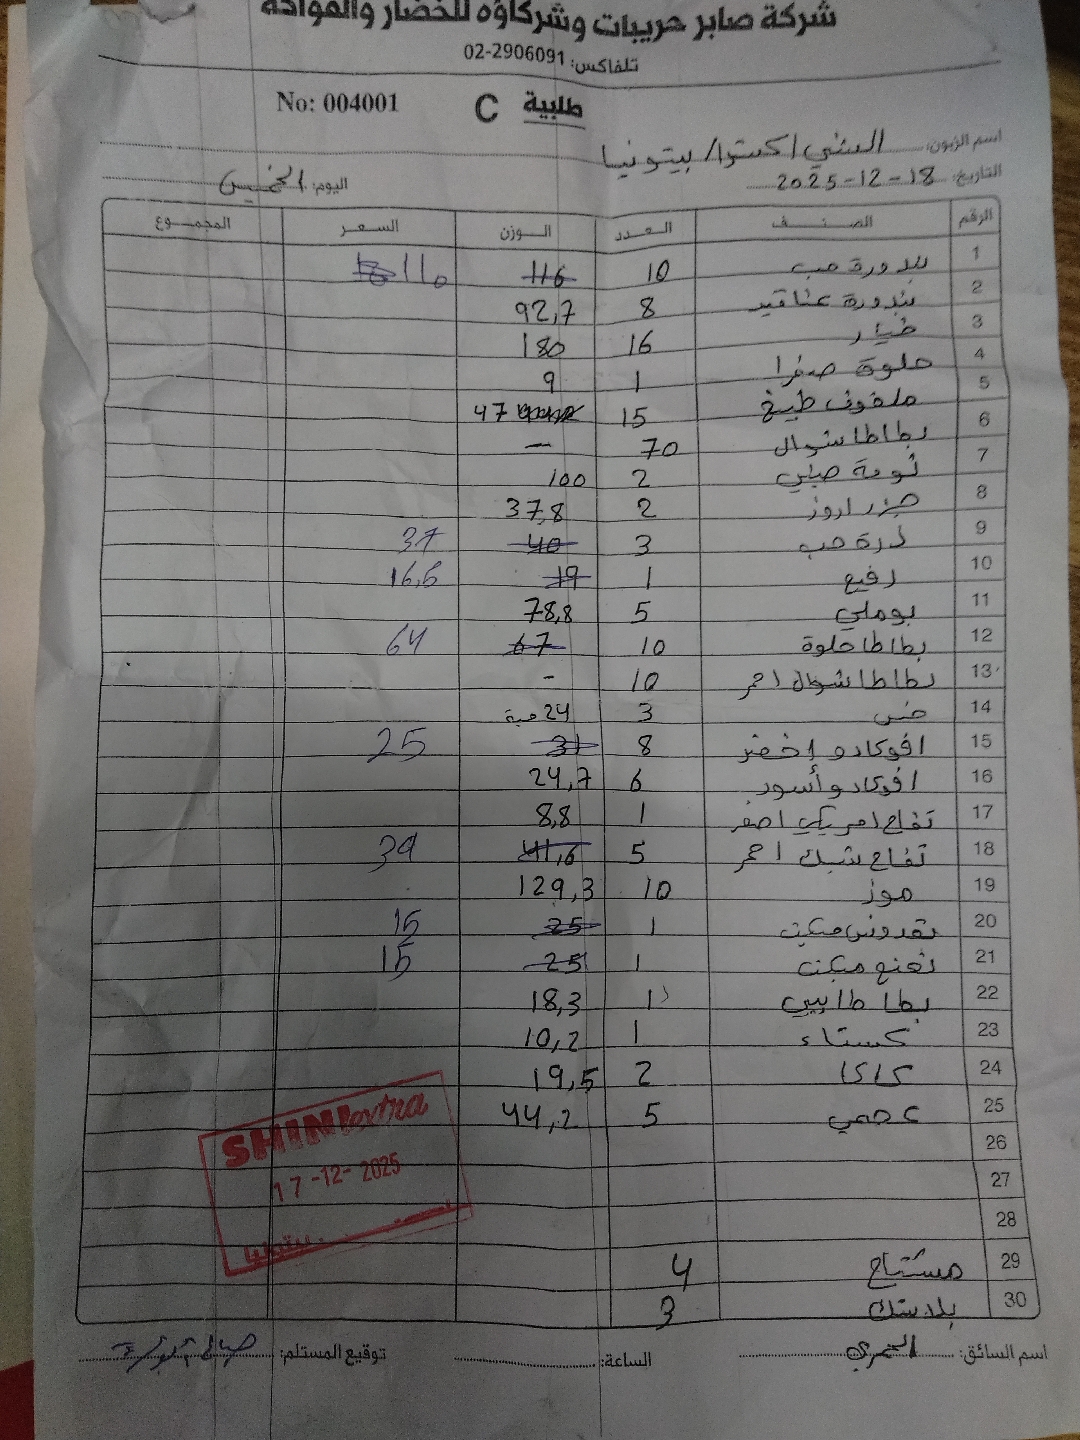 شركة صابر حريبات وشركاؤه للخضار والفواكه
تلفاكس: 02-2906091
طلبية C No: 004001
اسم الزبون: الشني اكسترا/ بيتونيا
التاريخ: 18-12-2025 اليوم: الخميس
الرقم الصنف العدد الوزن السعر المجموع
1 بندورة حب 10 116 110
2 بندورة عناقيد 8 92,7
3 خيار 16 180
4 حلوة صفرا 1 9
5 ملفوف طبيخ 15 47
6 بطاطا شوال 70 -
7 ثومة صيني 2 100
8 جزر اروز 2 37,8
9 ذرة حب 3 40 37
10 رفيع 1 19 16,5
11 بوملي 5 78,8
12 بطاطا حلوة 10 67 64
13 بطاطا شوال احمر 10 -
14 خس 3 24 حبة
15 افوكادو اخضر 8 31 25
16 افوكادو أسود 6 24,7
17 تفاح امريكي اصفر 1 8,8
18 تفاح شبك احمر 5 41,6 39
19 موز 10 129,3
20 بقدونس مبكت 1 25 15
21 نعنع مبكت 1 25 15
22 بطاطا بيبي 1 18,3
23 كستناء 1 10,2
24 كاكا 2 19,5
25 عجمي 5 44,2
26
27
28
29 مشتاح 4
30 بلاستك 3
SHINI extra
17-12-2025
بيتونيا
اسم السائق: العمري الساعة: توقيع المستلم: